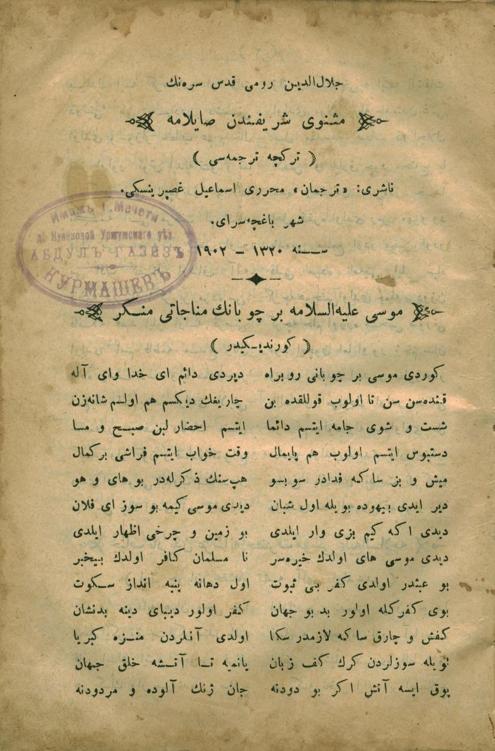 جلال‌الدین رومی قدس سره‌نك
مثنوی شریفندن صایلامه
( ترکچه ترجمه‌سی )
ناشری: «ترجمان» محرری اسماعیل غصپرینسکی.
شهر باغچه‌سرای.
ســنه ۱۳۲۰ – ۱۹۰۲
Имамъ 1 Мечети
АБДУЛЪ ГАЗИЗЪ
КУРМАШЕВЪ
موسی علیه‌السلامه بر چوبانك مناجاتی منکر
( کورندیکیدر )
کوردی موسی بر چوبانی روبراه دیردی دائم ای خدا وای آله
قنده‌سن سن تا اولوب قوللقده بن چاریغك دیکسم هم اولسم شانه‌زن
شست و شوی جامه ایتسم دائما ایتسم احضار لبن صبح و مسا
دستبوس ایتسم اولوب هم پایمال وقت خواب ایتسم فراشی برکمال
میش و بز ساکه فدادر سوبسو هپ‌سنك ذکرله‌در بو های و هو
دیر ایدی بیهوده بویله اول شبان دیدی موسی کیمه بو سوز ای فلان
دیدی اکه کیم بزی وار ایلدی بو زمین و چرخی اظهار ایلدی
دیدی موسی های اولدك خیره‌سر تا مسلمان کافر اولدك بیخبر
بو عبثدر اولدی کفر بی ثبوت اول دهانه پنبه انداز سکوت
بوی کفرکله اولور بد بو جهان کفر اولور دیبای دینه بدنشان
کفش و چارق ساکه لازمدر سکا اولدی آنلردن منزه کبریا
بویله سوزلردن کرك کف زبان یانمیه تا آتشه خلق جهان
یوق ایسه آتش اکر بو دودنه جان ژنك آلوده و مردودنه